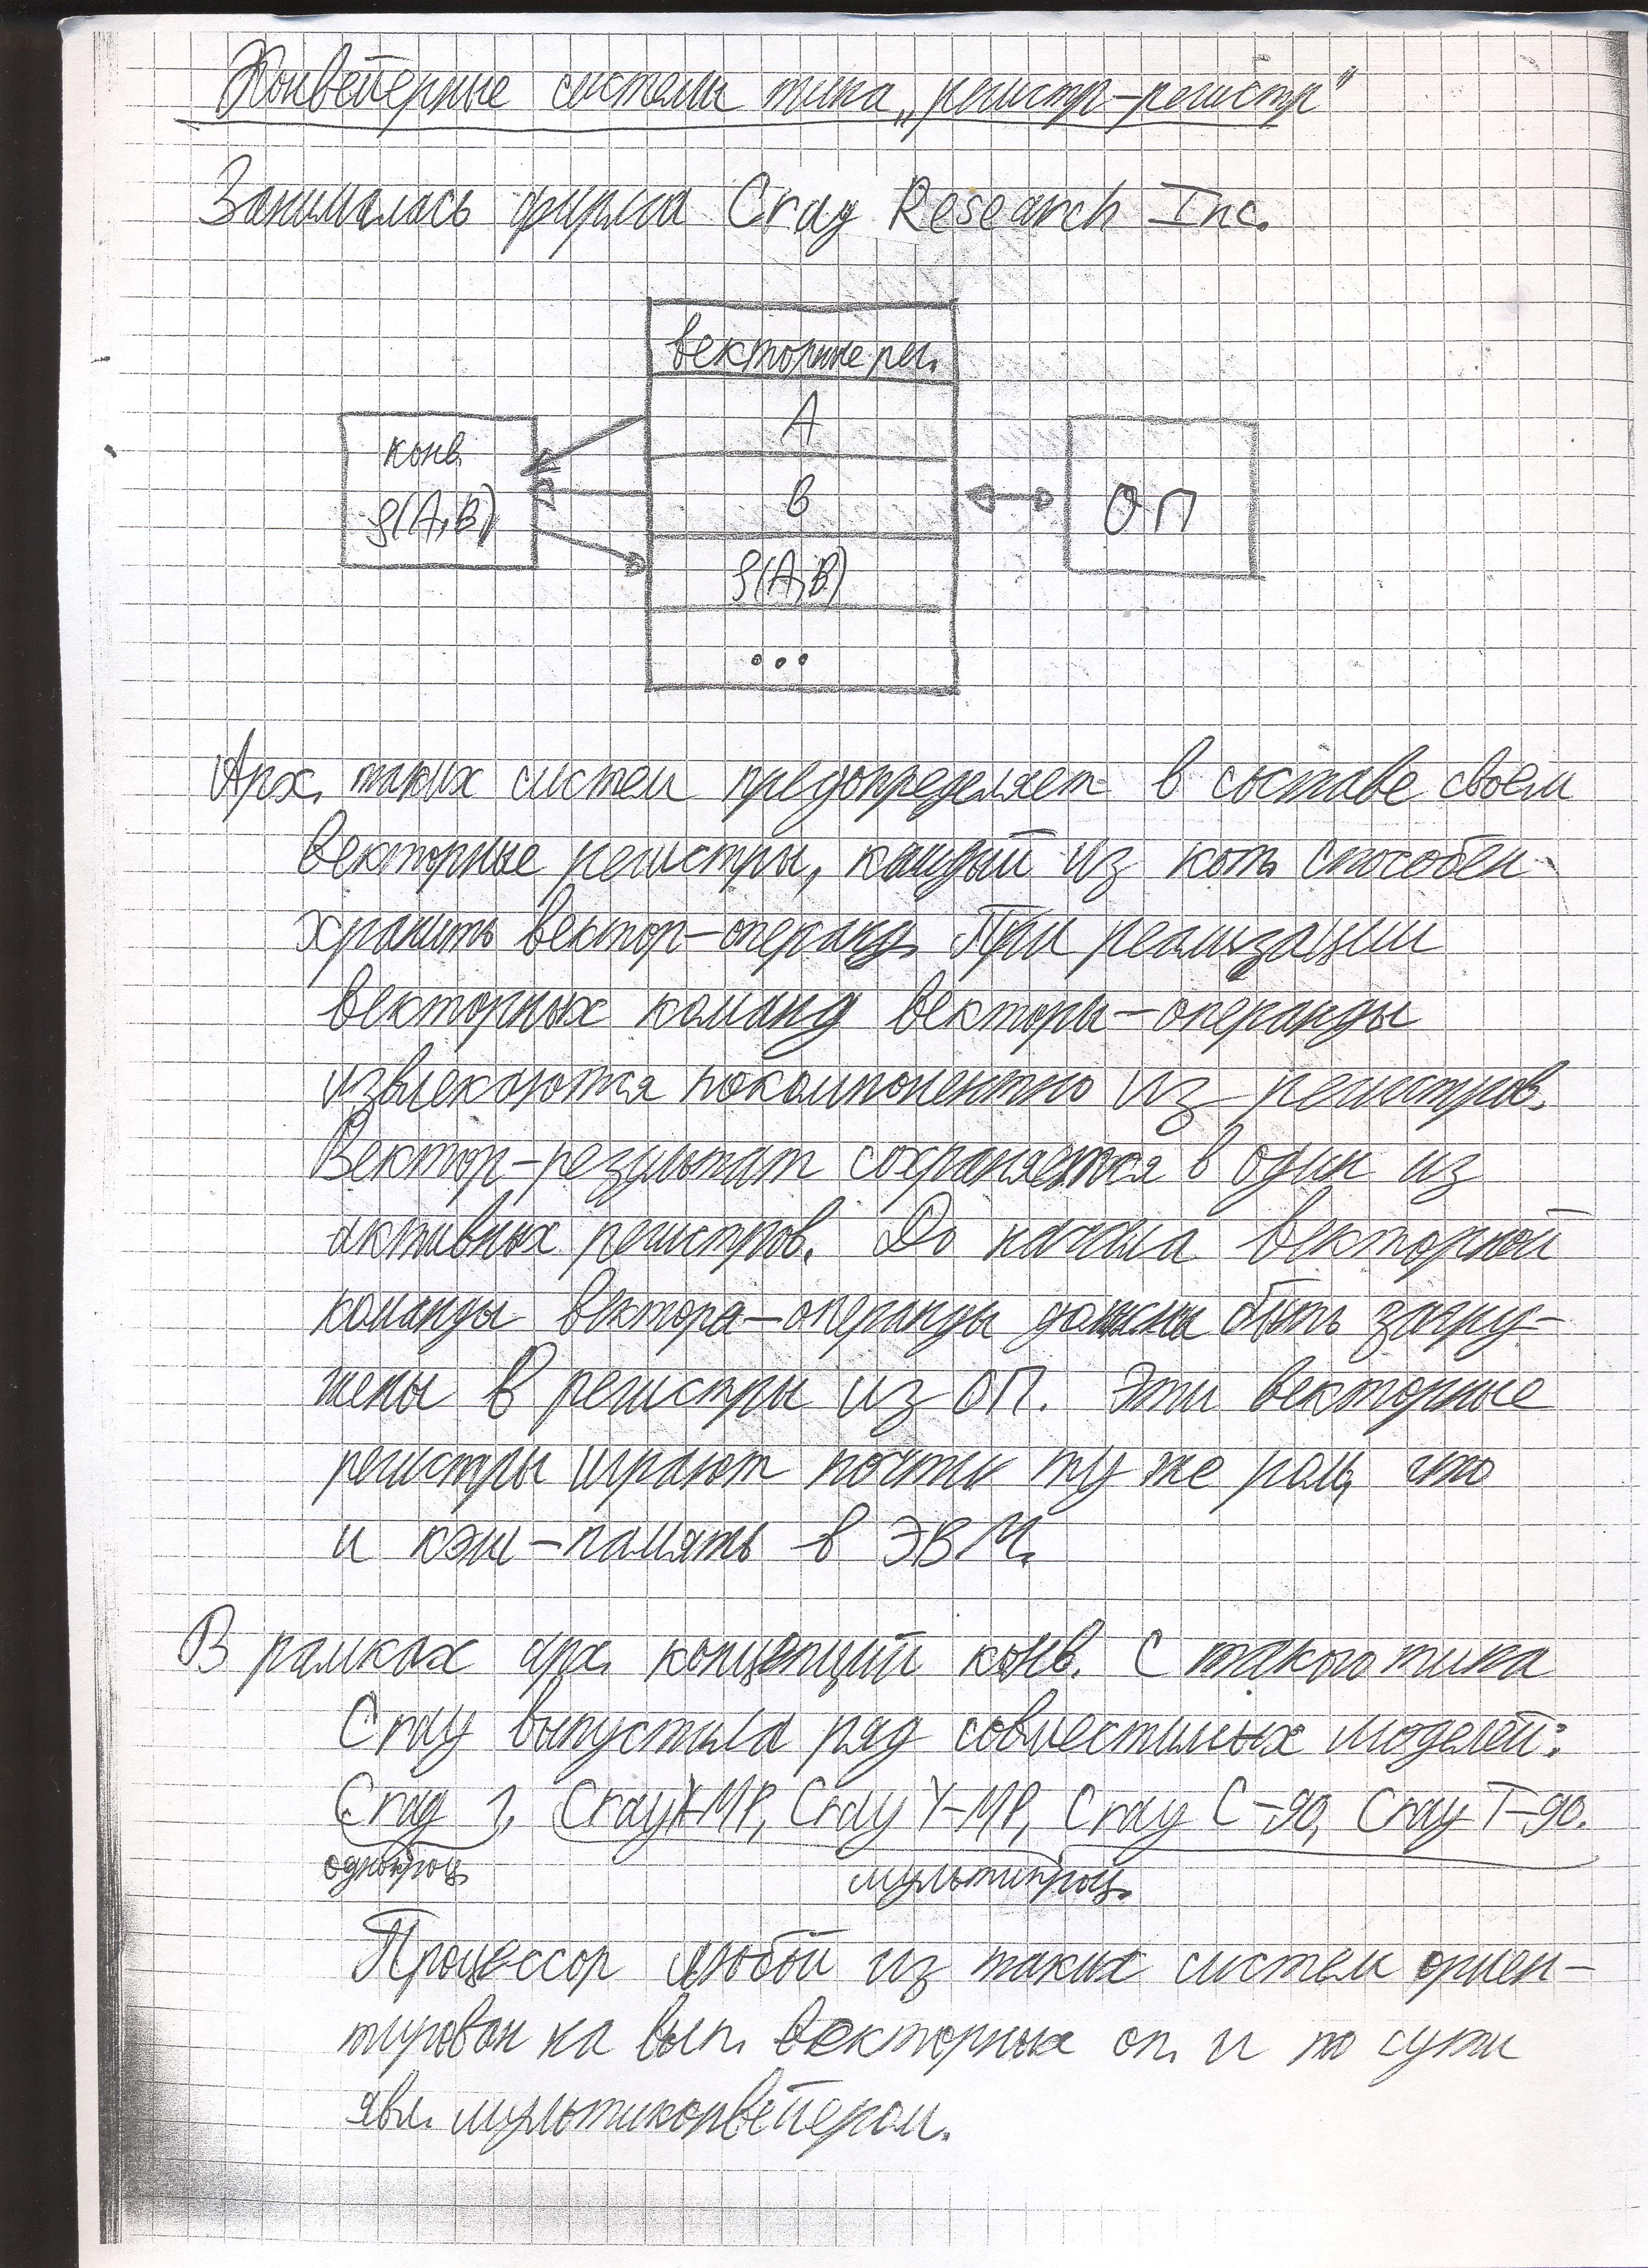 Конвейерные системы типа „регистр-регистр"
Занималась фирма Cray Research Inc.
векторные рег.
A
конв.
B
ОП
f(A,B)
f(A,B)
...
Арх. таких систем предопределяет в составе своем
векторные регистры, каждый из кот. способен
хранить вектор-операнд. При реализации
векторных команд векторы-операнды
извлекаются покомпонентно из регистров.
Вектор-результат сохраняется в один из
активных регистров. До начала векторной
команды вектора-операнды должны быть загру-
жены в регистры из ОП. Эти векторные
регистры играют почти ту же роль, что
и кэш-память в ЭВМ.
В рамках арх. концепций конв. С такого типа
Cray выпустила ряд совместимых моделей:
Cray 1, Cray X-MP, Cray Y-MP, Cray C-90, Cray T-90.
однопроц. мультипроц.
Процессор любой из таких систем ориен-
тирован на вып. векторных оп. и по сути
явл. мультиконвейером.